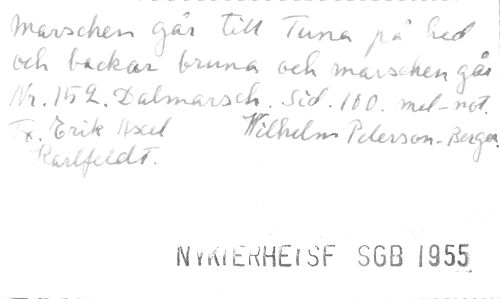 Marschen går till Tuna på hed
och backar bruna och marschen går
Nr. 152. Dalmarsch. Sid. 100. mel-not.
Tx. Erik Axel Wilhelm Peterson-Berger.
Karlfeldt.
NYKTERHETSF SGB 1955